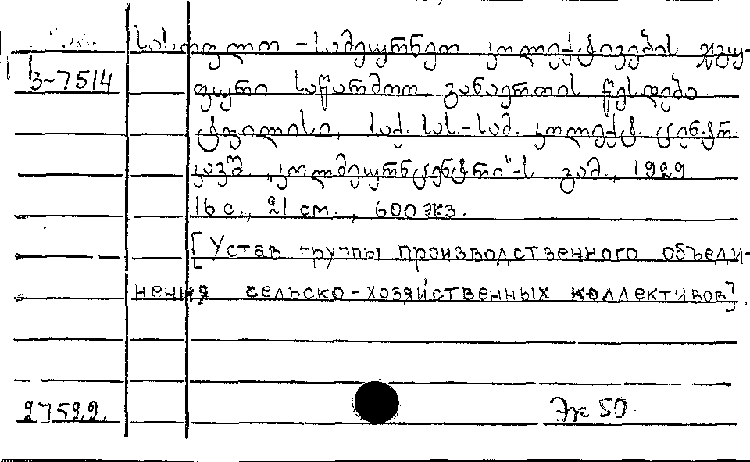 სასოფლო-სამეურნეო კოლექტივების ჯგუ-
3-7514
ფური საწარმოო გაერთ. წესდება
ტფილისი, საქ. სას.-სამ. კოლექტ. ცენტრ.
კავშ. „კოლმეურნცენტრი"-ს გამ., 1929
16 с., 21 см., 600 экз.
[Устав группы производственного объеди-
нения сельско-хозяйственных коллективов].
27522
Эк 50